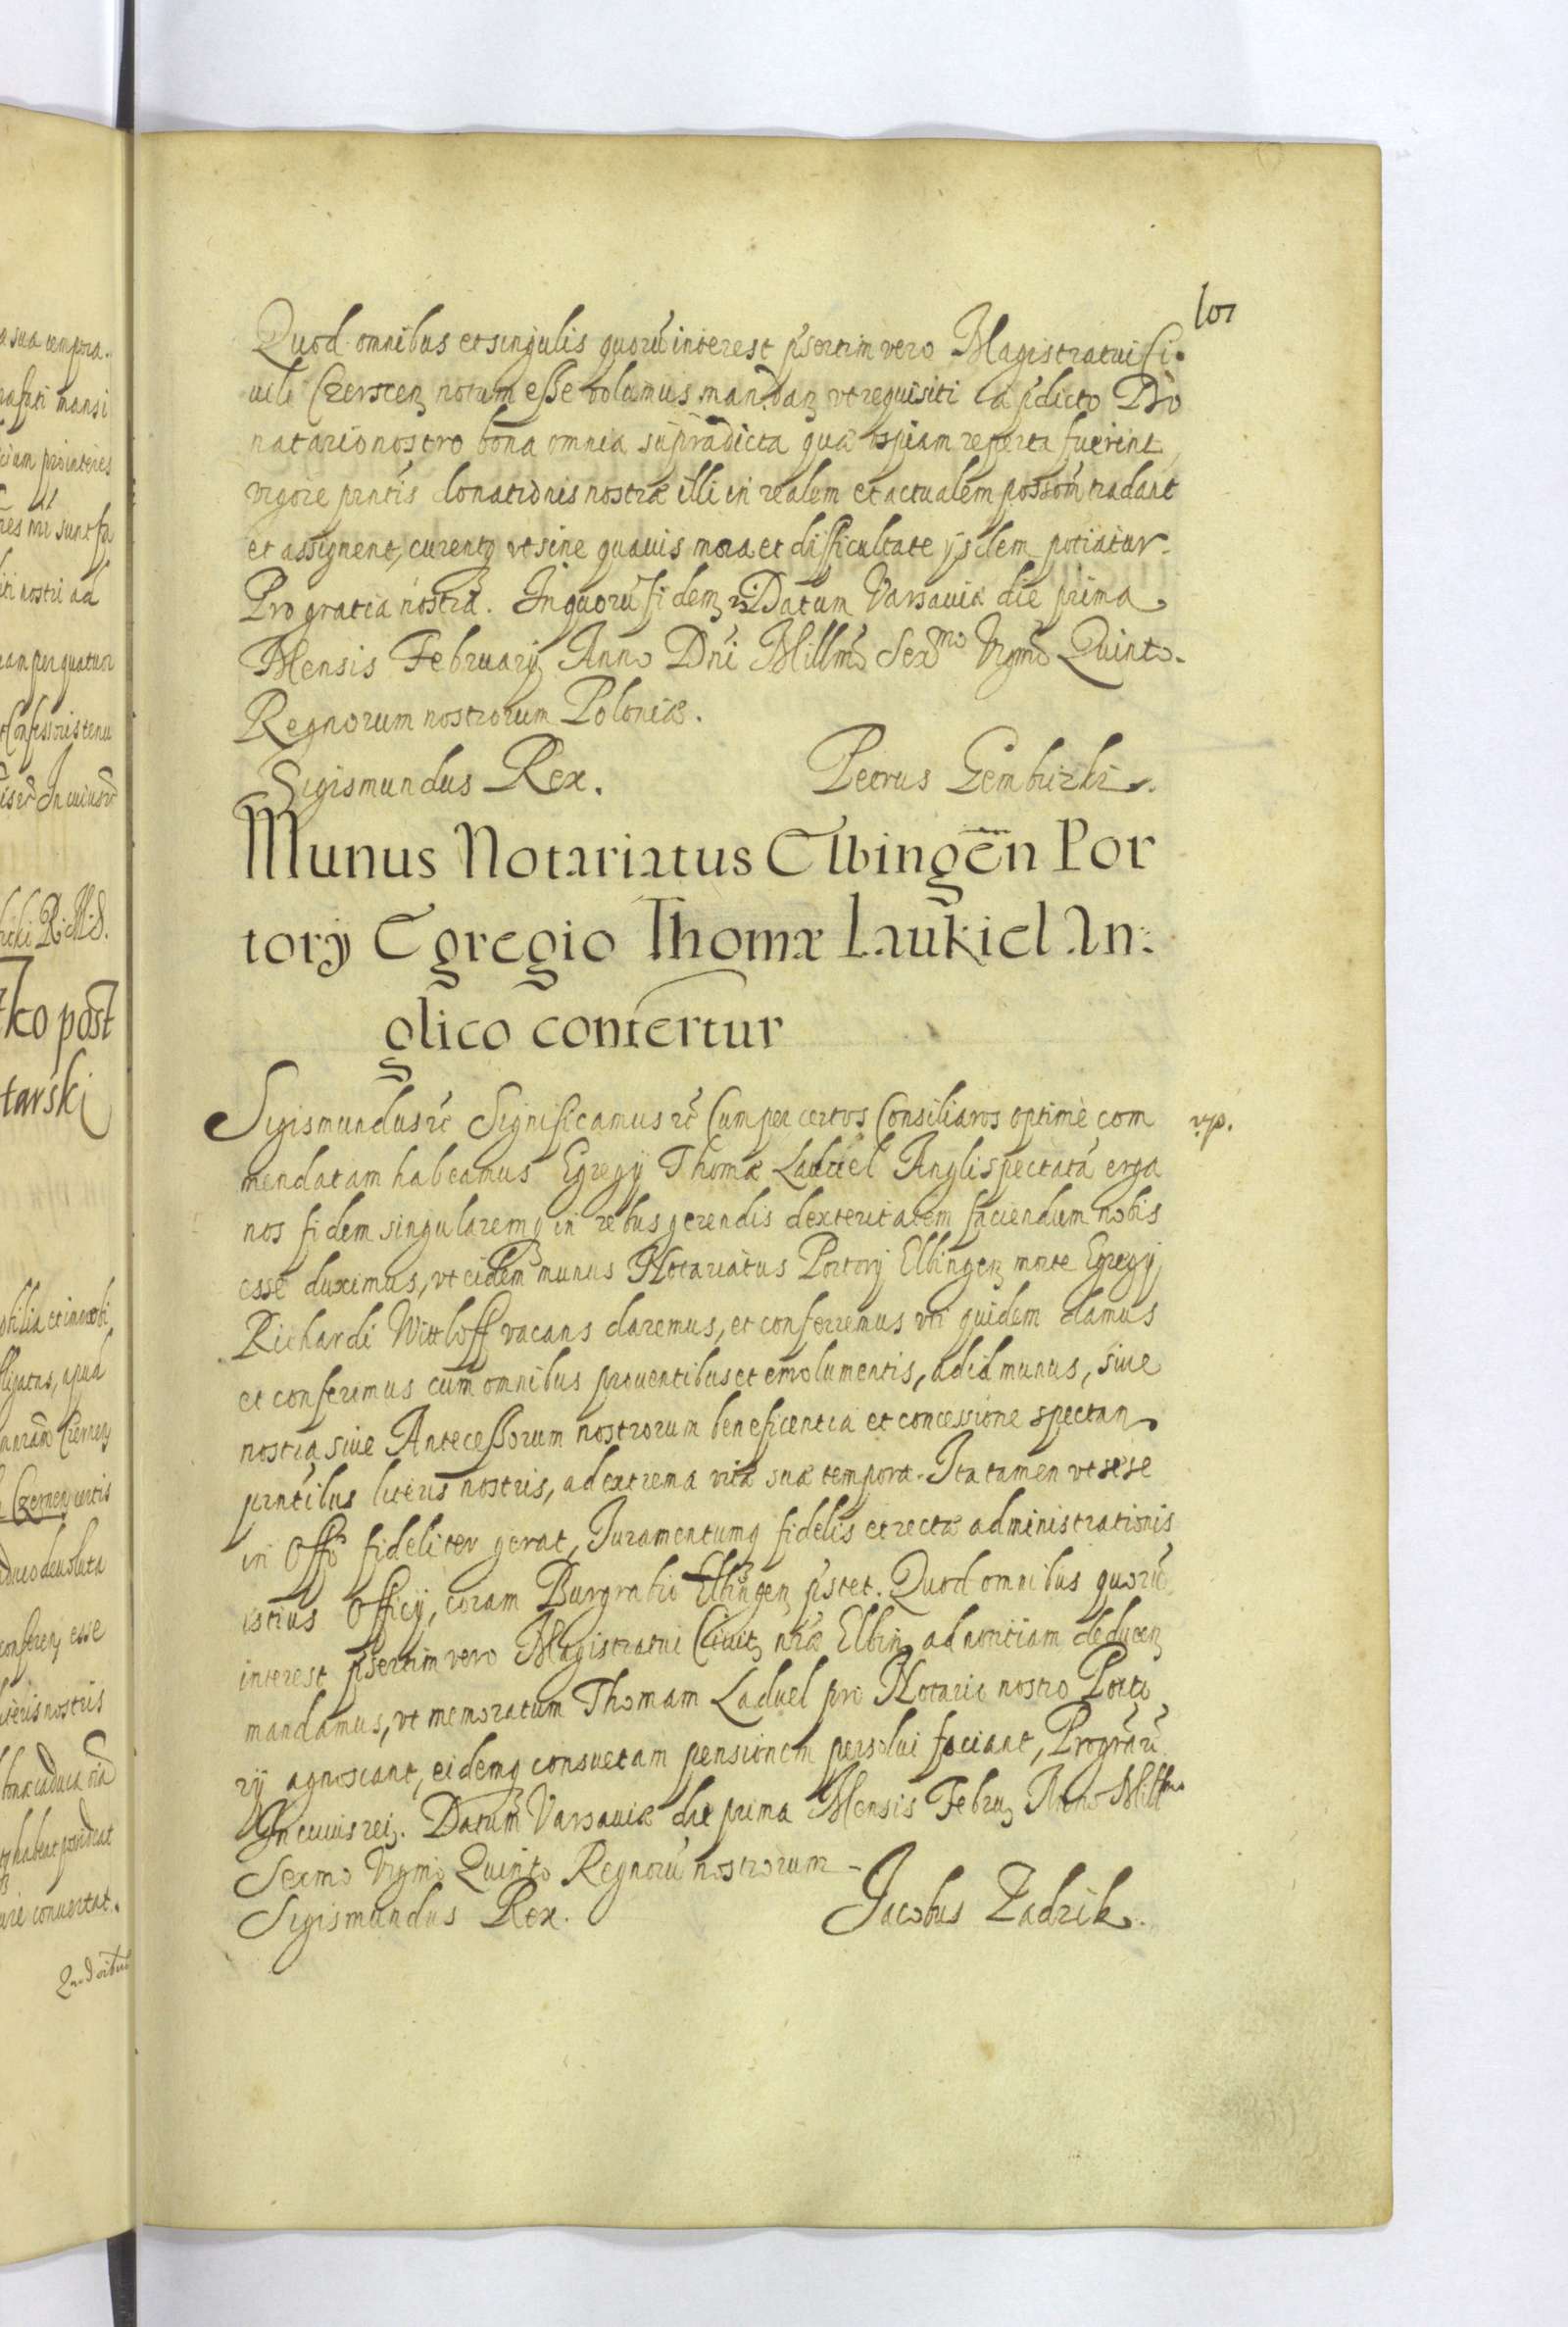 101
Quod omnibus et singulis quorū interest p̃sertim vero Magistratui Ci
uili Czerscen̄ notum esse volumus mandan̄ vt requisiti a p̃dicto Do
natario nostro bona omnia supradicta quæ uspiam reperta fuerint
vigore pr̃ntis donationis nostræ illi in realem et actualem possõm tradant
et assignent, curentq vt sine quauis mora et difficultate ijsdem potiatur.
Pro gratia nostra. In quorū fidem Datum Varsauiæ die prima
Mensis Februarij Anno Dñi Millmo Sexmo Vigmo Quinto.
Regnorum nostrorum Poloniæ.
Sigismundus Rex. Petrus Gembicki.
Munus Notariatus Elbingēn Por
torij Egregio Thomæ Laukiel An:
glico confertur
Sigismundus rc̃ Significamus rc̃ Cum per certos Consiliaros optimè com
mendatam habeamus Egregij Thomæ Laduel Angli spectatā erga
nos fidem singularemq in rebus gerendis dexteritatem faciendum nobis
esse duximus, vt eidem munus Notariatus Portorij Elbingen̄ morte Egregij
Richardi Wittloff vacans daremus, et conferremus vti quidem damus
et conferimus cum omnibus prouentibus et emolumentis, ad id munus, siue
nostra siue Antecessorum nostrorum beneficentia et concessione spectan
pr̃ntibus literis nostris, ad extrema vitæ suæ tempora. Ita tamen vt sese
in Offõ fideliter gerat, Juramentumq fidelis et rectæ administrationis
istius Officij, coram Burgrabio Elbingen̄ p̃stet. Quod omnibus quorū
interest p̃sertim vero Magistratui Ciuit̄ nr̃æ Elbin̄ ad notitiam deducen̄
mandamus, vt memoratum Thomam Laduel pro Notario nostro Porto
rij agnoscant, eidemq consuetam pensionem persolui faciant, Pro gr̃a nr̃a
In cuius rei. Datum Varsauiæ die prima Mensis Febru Anno Millmo
Sexmo Vigmo Quinto Regnorū nostrorum
Sigismundus Rex. Jacobus Zadzik.